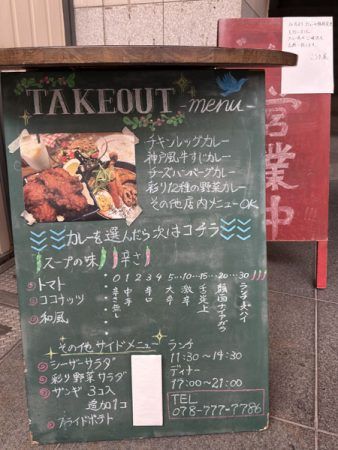 TAKEOUT -menu-
チキンレッグカレー
神戸風牛すじカレー
チーズハンバーグカレー
彩り12種の野菜カレー
その他店内メニューOK
カレーを選んだら次はコチラ
スープの味
①トマト
②ココナッツ
③和風
辛さ
0 1 2 3 4 5…10…15…20…30
辛さ無し
中辛
辛口
大辛
激辛
ランチ大ハイ
その他サイドメニュー
シーザーサラダ
彩り野菜サラダ
ザンギ 3コ入
追加1コ
フライドポテト
ランチ
11:30~14:30
ディナー
17:00~21:00
TEL
078-777-7786
営業中